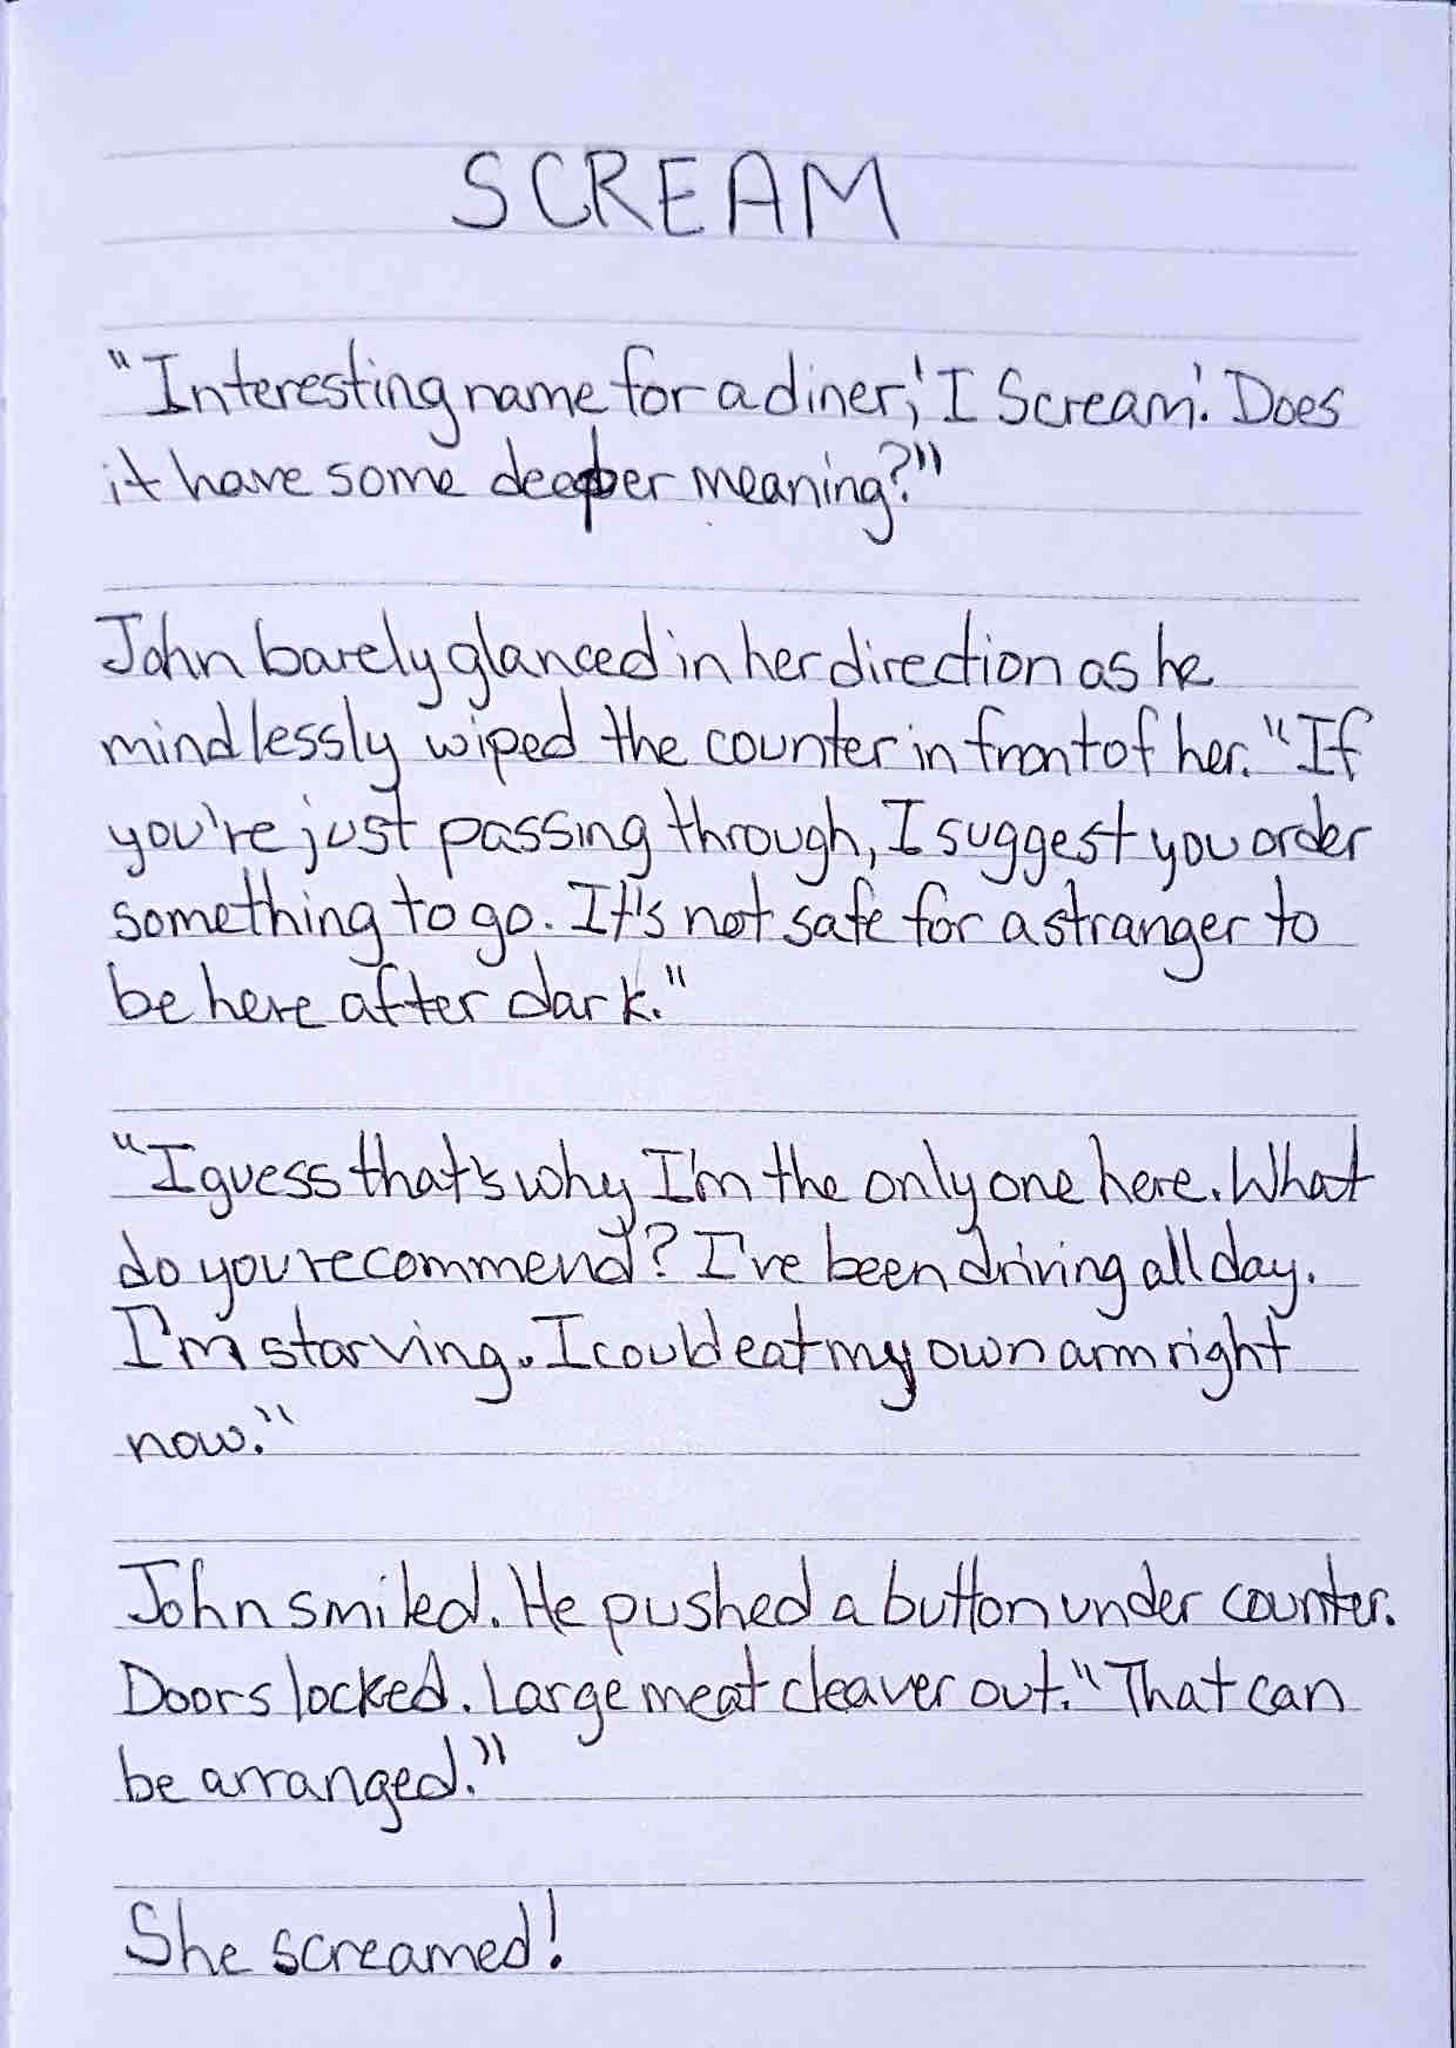 SCREAM
"Interesting name for a diner, 'I Scream'. Does
it have some deeper meaning?"
John barely glanced in her direction as he
mindlessly wiped the counter in front of her. "If
you're just passing through, I suggest you order
something to go. It's not safe for a stranger to
be here after dark."
"I guess that's why I'm the only one here. What
do you recommend? I've been driving all day.
I'm starving. I could eat my own arm right
now."
John smiled. He pushed a button under counter.
Doors locked. Large meat cleaver out. "That can
be arranged."
She screamed!